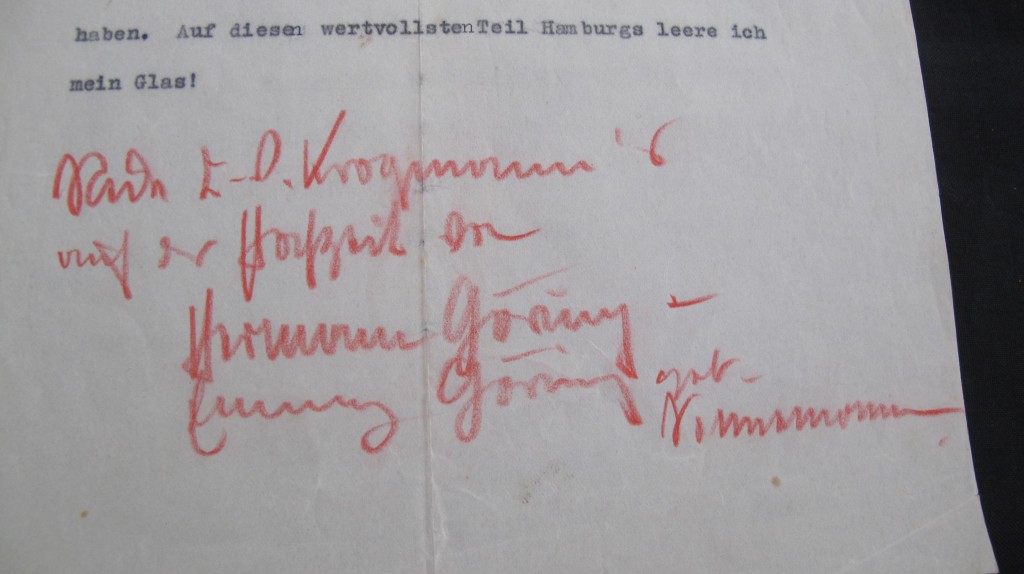 haben. Auf diesen wertvollsten Teil Hamburgs leere ich
mein Glas!
Rede E-D. Krogmann's
auf der Hochzeit von
Hermann Göring –
Emmy Göring geb.
Sonnemann